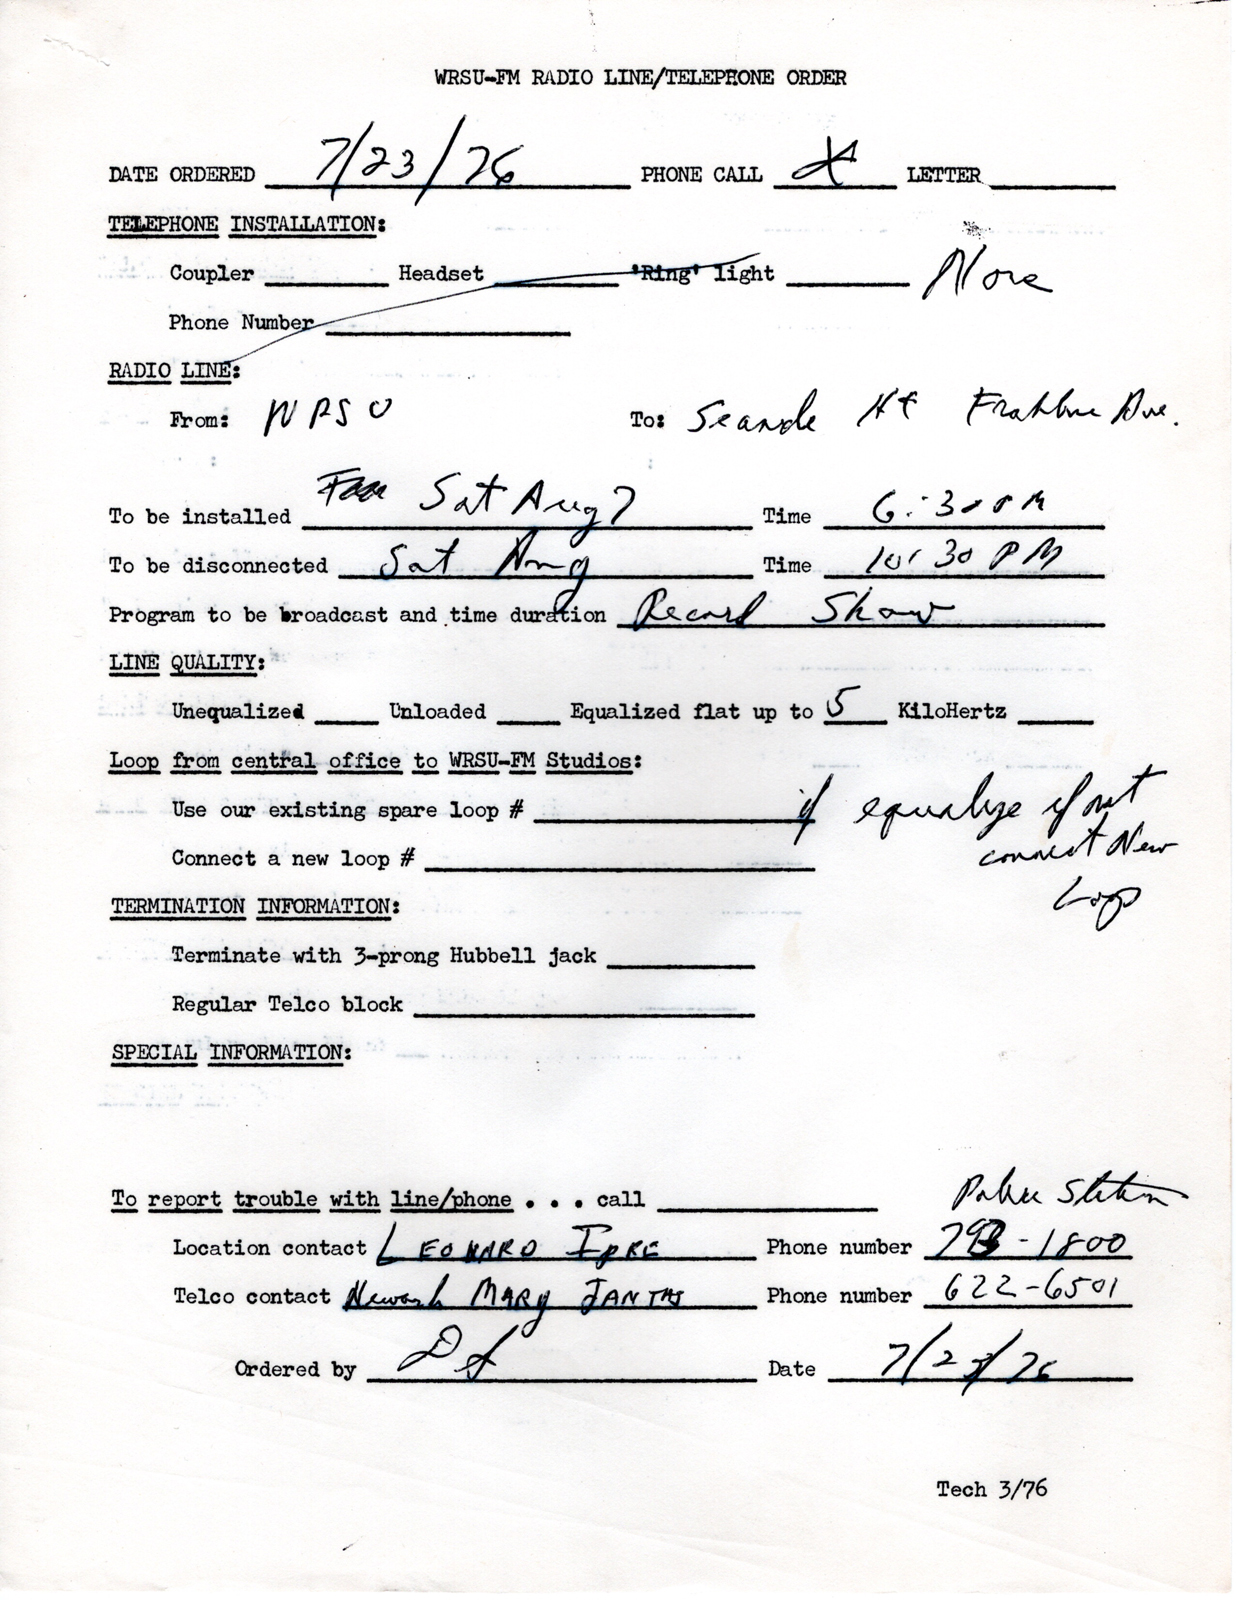 WRSU-FM RADIO LINE/TELEPHONE ORDER
DATE ORDERED 7/23/76 PHONE CALL X LETTER
TELEPHONE INSTALLATION:
Coupler Headset 'Ring' light None
Phone Number
RADIO LINE:
From: WRSU To: Seaside Ht Franklin Ave.
To be installed Sat Aug 7 Time 6:30 PM
To be disconnected Sat Aug Time 10:30 PM
Program to be broadcast and time duration Record Show
LINE QUALITY:
Unequalized Unloaded Equalized flat up to 5 KiloHertz
Loop from central office to WRSU-FM Studios:
Use our existing spare loop # if equalize if not
connect New
Connect a new loop #
Loop
TERMINATION INFORMATION:
Terminate with 3-prong Hubbell jack
Regular Telco block
SPECIAL INFORMATION:
Police Station
To report trouble with line/phone . . . call
Location contact LEONARD IPRE Phone number 793-1800
Telco contact Newark MARY Phone number 622-6501
Ordered by Date 7/23/76
Tech 3/76